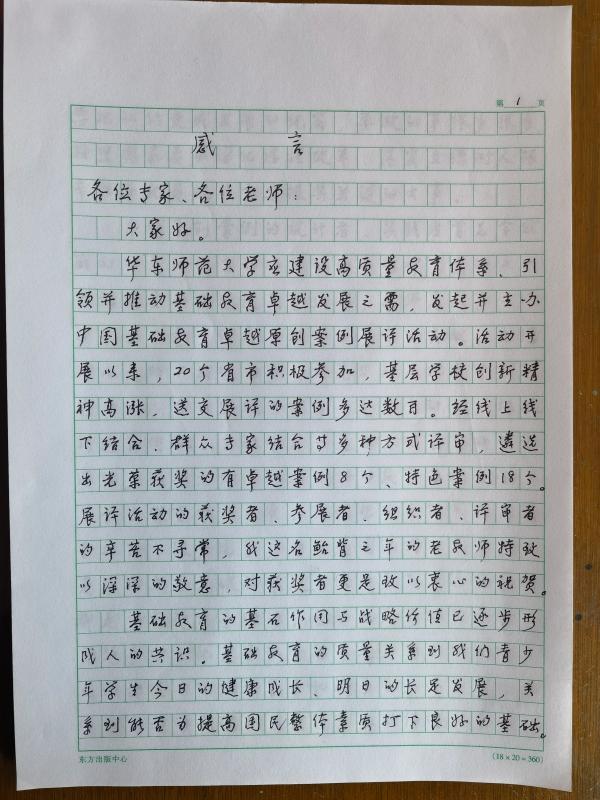 第 1 页
感 言
各位专家、各位老师：
大家好。
华东师范大学应建设高质量教育体系、引
领并推动基础教育卓越发展之需，发起并主办
中国基础教育卓越原创案例展评活动。活动开
展以来，20个省市积极参加，基层学校创新精
神高涨，送交展评的案例多达数百。经线上线
下结合、群众专家结合等多种方式评审，遴选
出光荣获奖的有卓越案例8个、特色案例18个。
展评活动的获奖者、参展者、组织者、评审者
的辛苦不寻常，我这名鲐背之年的老教师特致
以深深的敬意，对获奖者更是致以衷心的祝贺。
基础教育的基石作用与战略价值已逐步形
成人的共识。基础教育的质量关系到我们青少
年学生今日的健康成长、明日的长足发展，关
系到能否为提高国民整体素质打下良好的基础。
东方出版中心 (18×20=360)